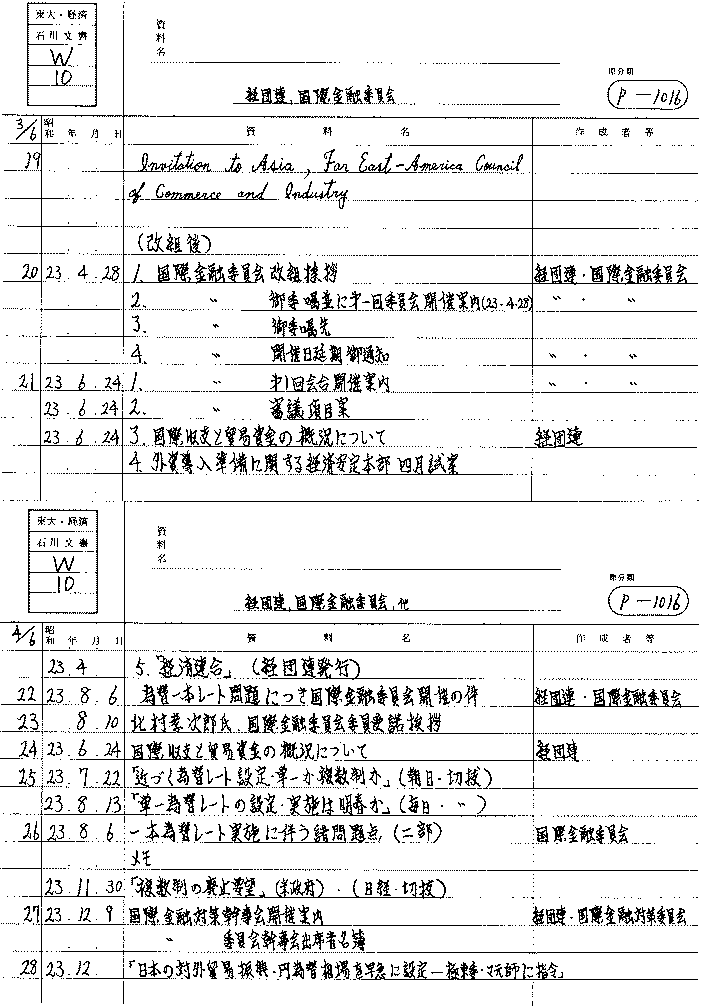 東大・経済
石川文書
W
10
資料名
経団連,国際金融委員会
原分類
P-1016
3/6 昭和 年 月 日 資料名 作成者等
19 Invitation to Asia, Far East-America Council
of Commerce and Industry
(改組後)
20 23.4.28 1. 国際金融委員会改組挨拶 経団連・国際金融委員会
2. 〃 御委嘱並に才一回委員会開催案内(23.4.28) 〃 ・ 〃
3. 〃 御委嘱先
4. 〃 開催日延期御通知 〃 ・ 〃
21 23.6.24 1. 〃 才1回会合開催案内 〃 ・ 〃
23.6.24 2. 〃 審議項目案
23.6.24 3. 国際収支と貿易資金の概況について 経団連
4. 外資導入準備に関する経済安定本部四月試案
東大・経済
石川文書
W
10
資料名
経団連,国際金融委員会,他
原分類
P-1016
4/6 昭和 年 月 日 資料名 作成者等
23.4 5.「経済連合」(経団連発行)
22 23.8.6 為替一本レート問題につき国際金融委員会開催の件 経団連・国際金融委員会
23 8 10 北村孝次郎氏 国際金融委員会委員受諾挨拶
24 23.6.24 国際収支と貿易資金の概況について 経団連
25 23.7.22 「近づく為替レート設定・単一か複数制か」(朝日・切抜)
23.8.13 「単一為替レートの設定・実施は明春か」(毎日・〃)
26 23.8.6 一本為替レート実施に伴う諸問題点,(二部) 国際金融委員会
メモ
23.11.30 「複数制の廃止要望」(米政府)・(日経・切抜)
27 23.12.9 国際金融対策幹事会開催案内 経団連・国際金融対策委員会
〃 委員会幹事会出席者名簿
28 23.12. 「日本の対外貿易振興・円為替相場を早急に設定―極東委・マ元帥に指令」